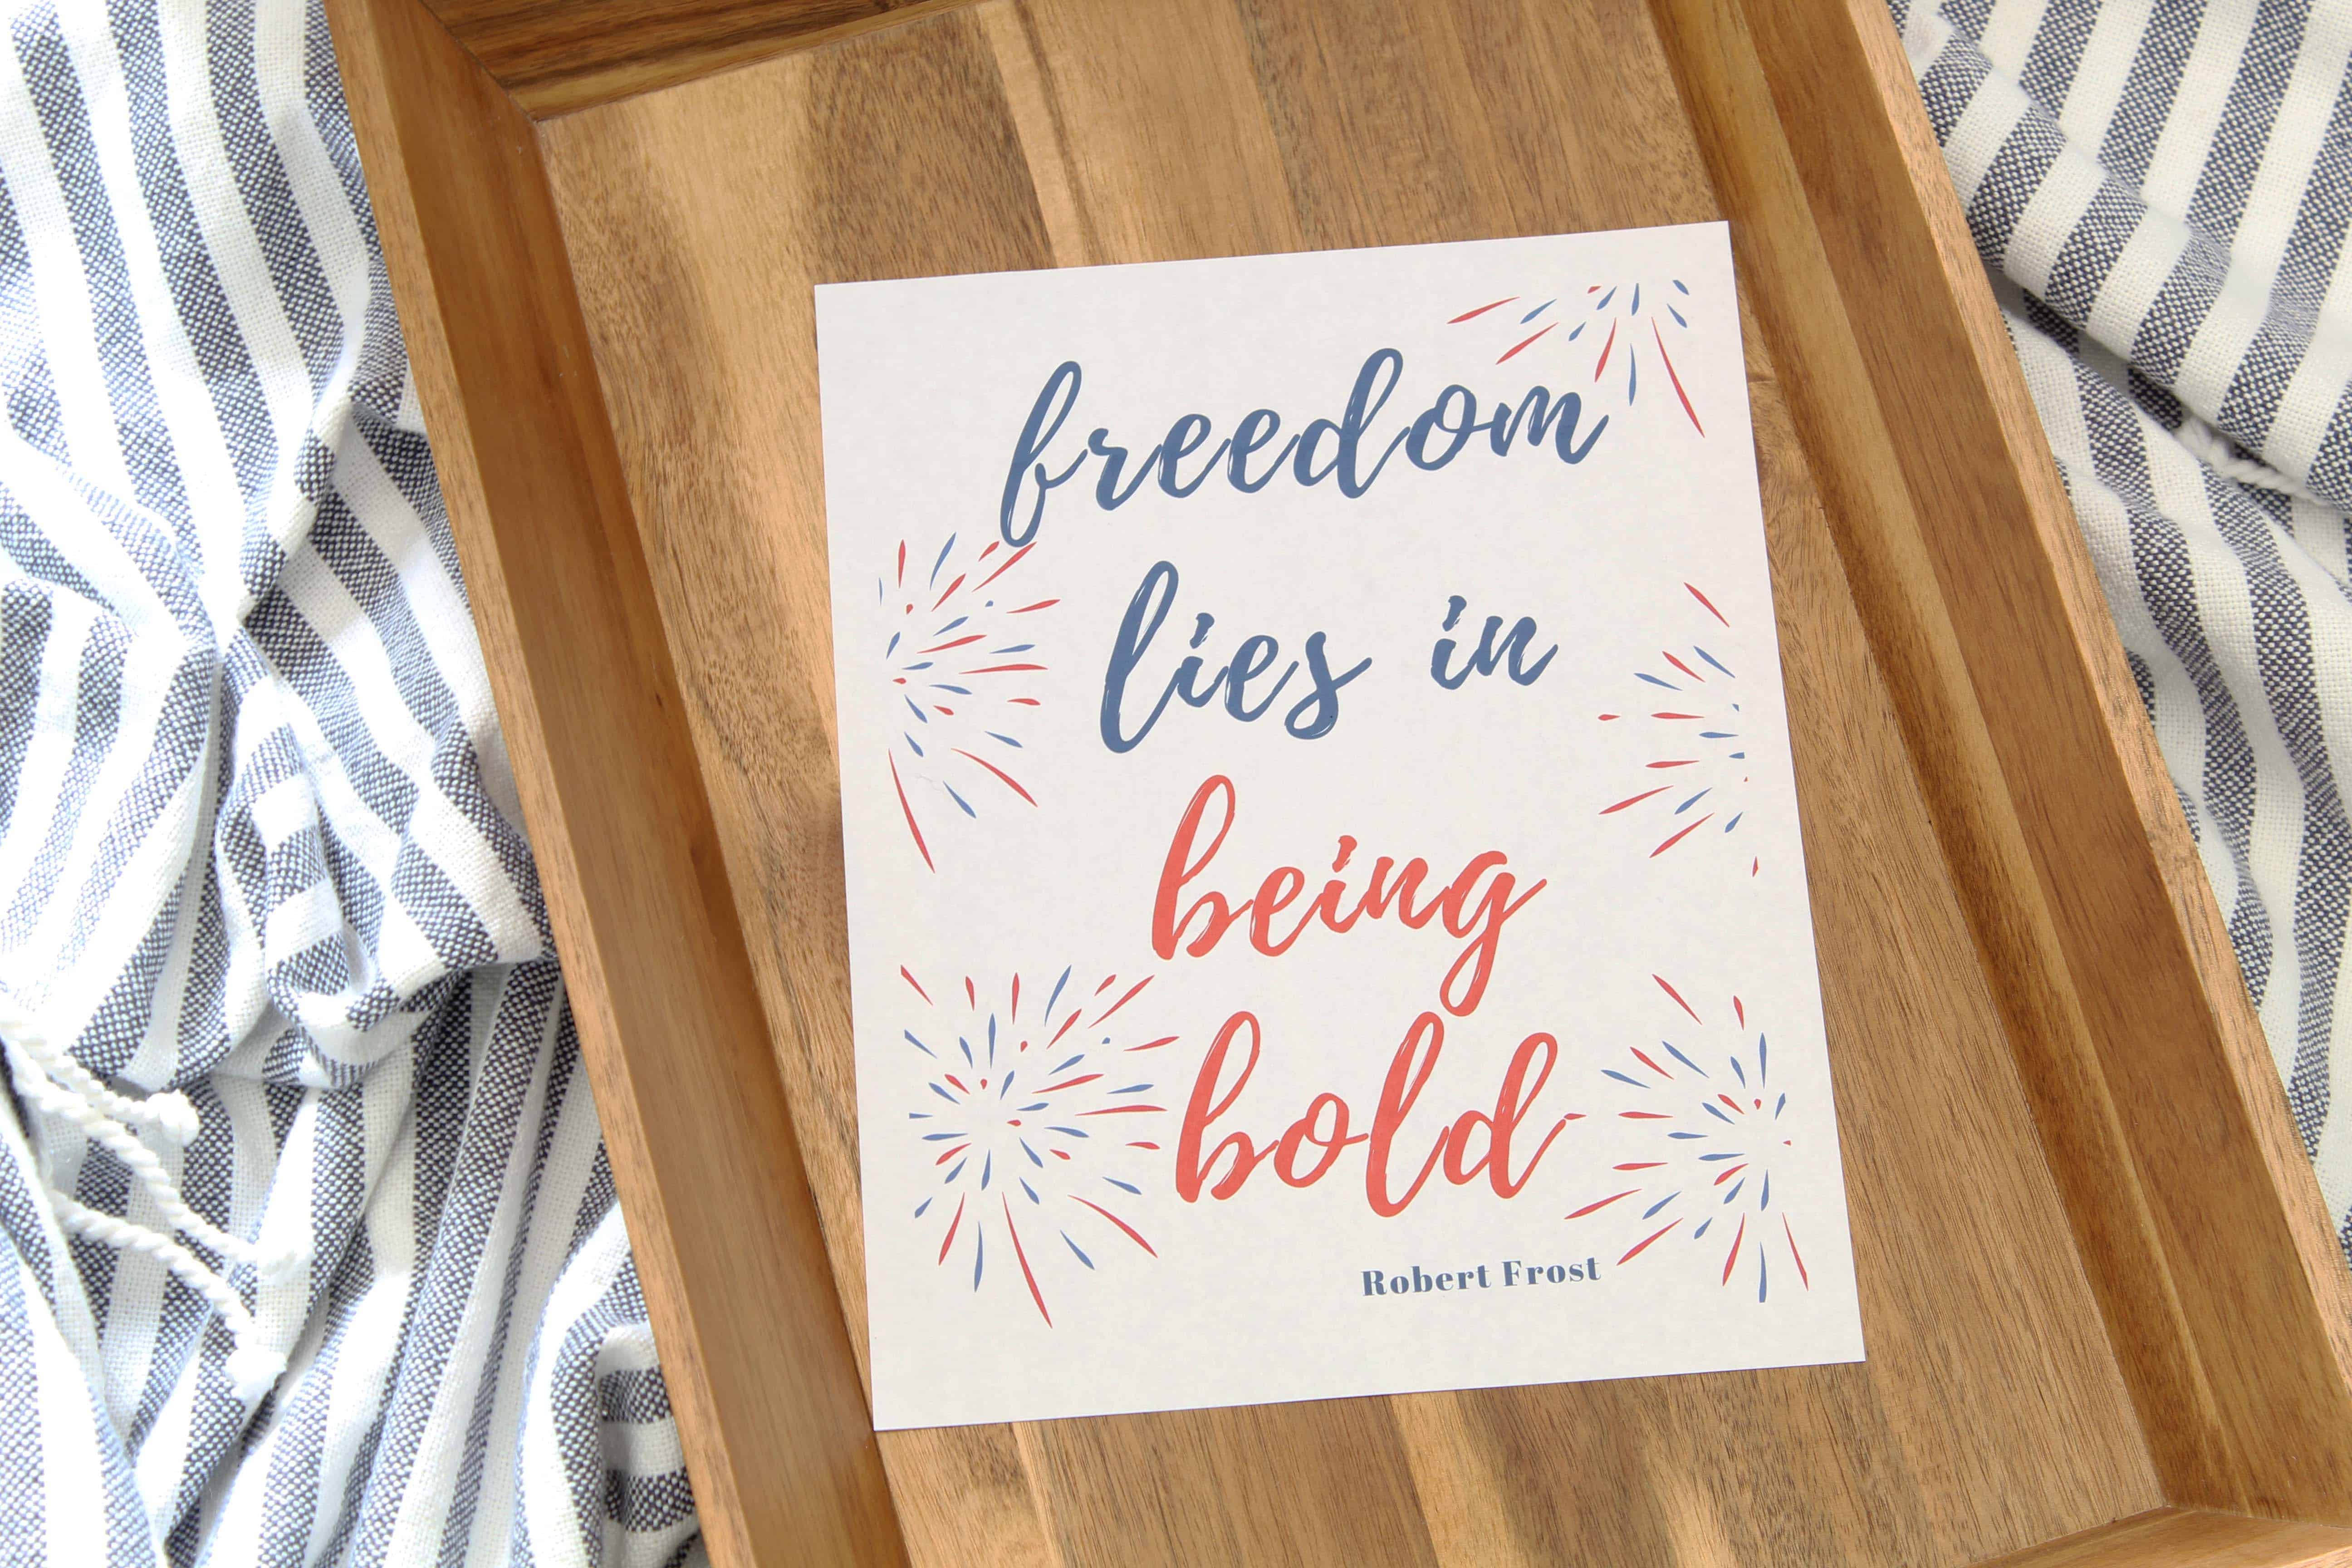 freedom
lies in
being
bold
Robert Frost